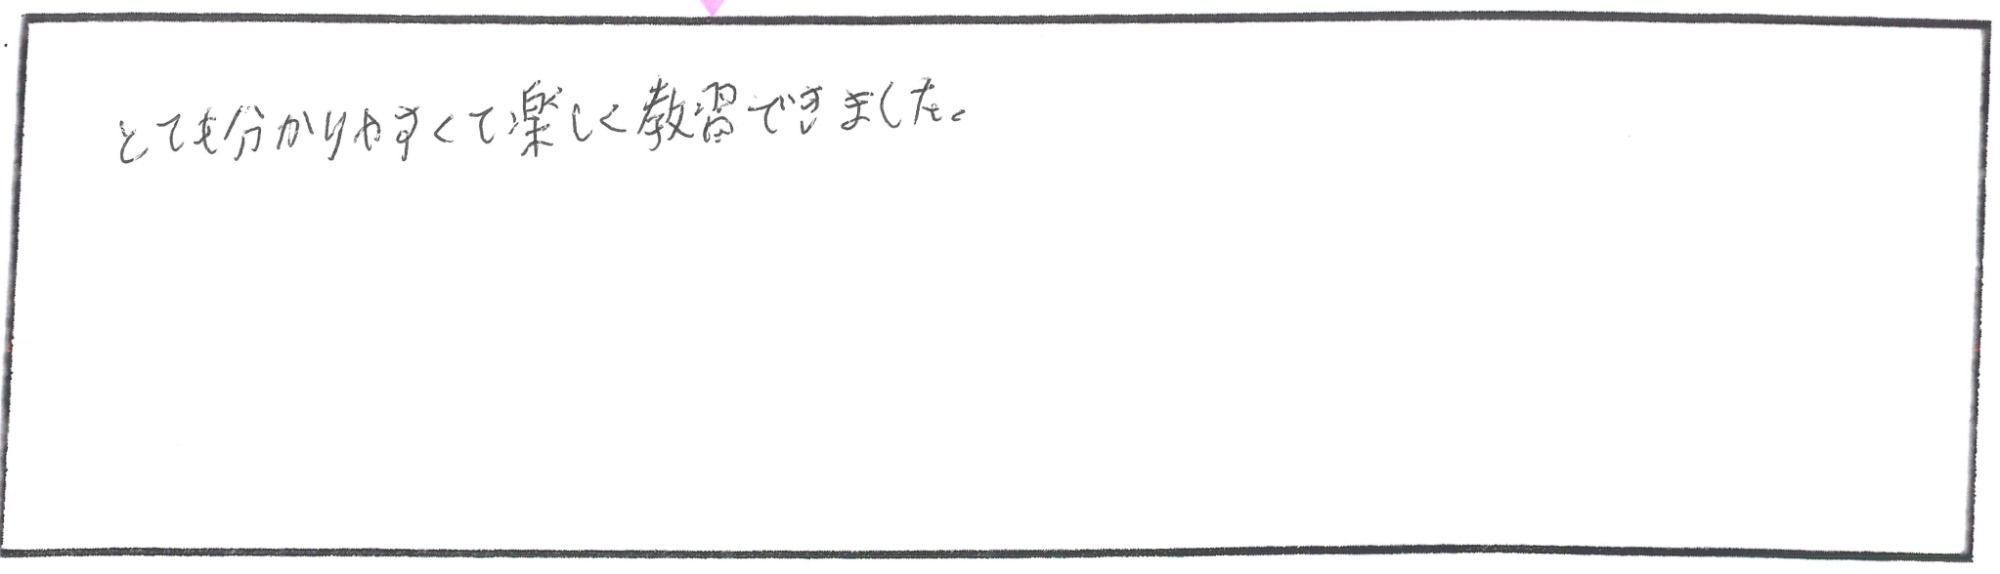 とても分かりやすくて楽しく教習できました。